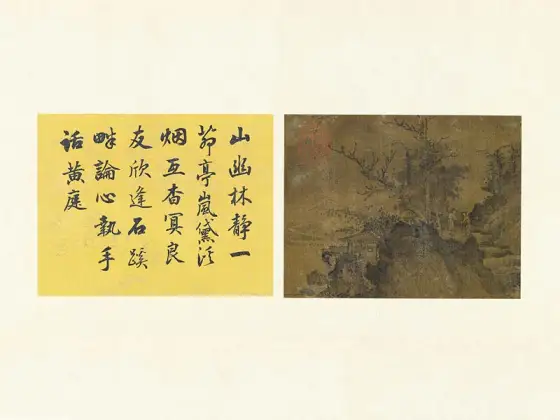 山幽林静一
茆亭嵐黛浮
烟互杳冥良
友欣逢石蹊
畔論心執手
話黄庭